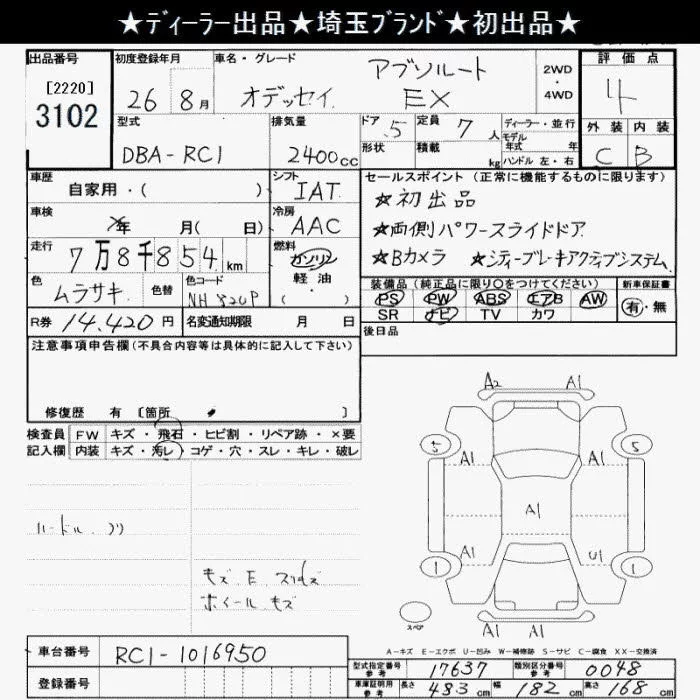 ★ディーラー出品★埼玉ブランド★初出品★
出品番号 初度登録年月 車名・グレード 評価点
[2220]
3102
26 8月 オデッセイ アブソルート EX 2WD・4WD 4
型式 排気量 ドア 5 定員 7人 ディーラー・並行 外装 内装
DBA-RC1 2400cc 形状 積載 kg モデル年式 年 ハンドル 左・右 C B
車歴 自家用・( ) シフト IAT セールスポイント (正常に機能するものに限ります)
★初出品
車検 ×年 月( 日) 冷房 AAC ★両側パワースライドドア
走行 7万8千854km 燃料 ガソリン 軽油 ( ) ★Bカメラ ★シティーブレーキアクティブシステム
色 ムラサキ 色替 色コード NH820P 装備品 (純正品に限り○をつけてください) 新車保証書
PS PW ABS エアB AW 有・無
SR ナビ TV カワ
R券 14,420円 名変通知期限 月 日 後日品
注意事項申告欄(不具合内容等は具体的に記入して下さい)
修復歴 有 [箇所 ]
検査員 FW キズ・飛石・ヒビ割・リペア跡・×要
記入欄 内装 キズ・汚レ・コゲ・穴・スレ・キレ・破レ
A2 A1
5 A1 A1 5
A1 A1
1 A1 U1 1
ハンドル
キズ E
ホイールキズ
スペア
A-キズ E-エクボ U-凹み W-補修跡 S-サビ C-腐食 XX-交換済
車台番号 RC1-1016950
型式指定番号 参考 17637 類別区分番号 参考 0048
登録番号
車庫証明用 参考 長さ 483cm 幅 182cm 高さ 168cm